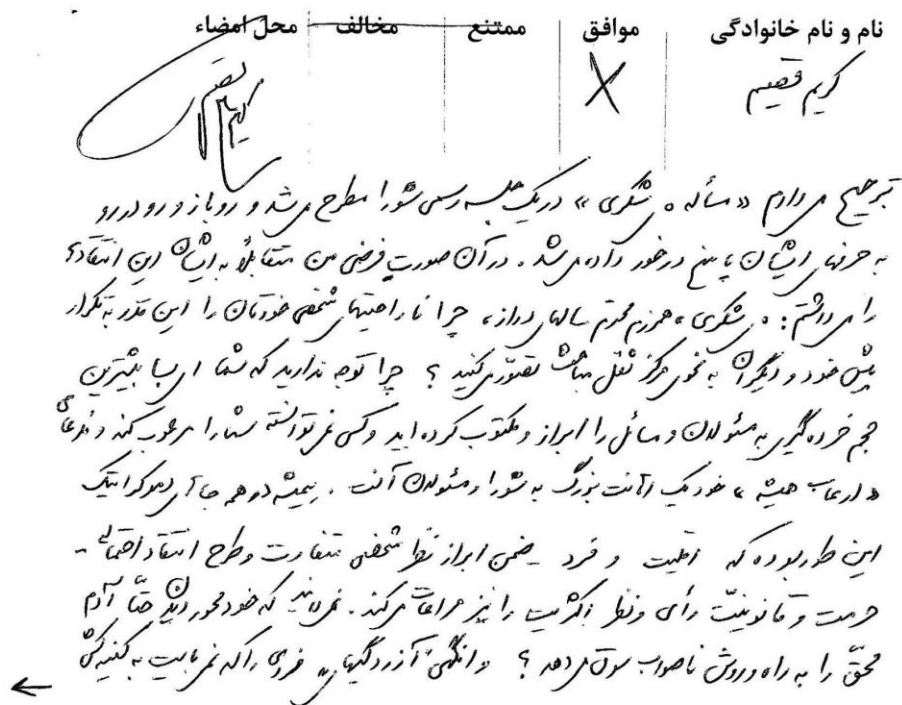 نام و نام خانوادگی موافق ممتنع مخالف محل امضاء
کریم قصیم
ترجیح می‌دادم «مسأله ه. شکری» در یک جلسه رسمی شورا مطرح می‌شد و روباز و رودررو
به حرفهای ایشان پاسخ درخور داده می‌شد. در آن صورتِ فرضی من متقابلاً به ایشان این انتقاد
را می‌داشتم: ه. شکری، همرزم محترم سالهای دراز، چرا ناراحتیهای شخصی خودتان را این قدر به تکرار
پیش خود و دیگران به نحوی مرکز ثقل مباحث تصور می‌کنید؟ چرا توجه ندارید که شما ای بسا بیشترین
حجم خرده گیری به مسئولان و مسائل را ابراز و مکتوب کرده اید و کسی نمی‌توانسته شما را مرعوب کند و
«ارعاب همیشه» خود یک اهانت بزرگ به شورا و مسئولان آنست. همیشه در همه جای دموکراتیک
این طور بوده که اقلیت و فرد - ضمن ابراز نظر شخصی متفاوت و طرح انتقاد احتمالی -
حرمت و قانونیتِ رأی و نظر اکثریت را نیز مراعات می‌کند. نمی‌دانید که خودمحور دیدن حتّا آدم
محقّ را به راه و روش ناصواب سوق می‌دهد؟ وانگهی آزردگیهای فردی را که نمی‌بایست به کینه